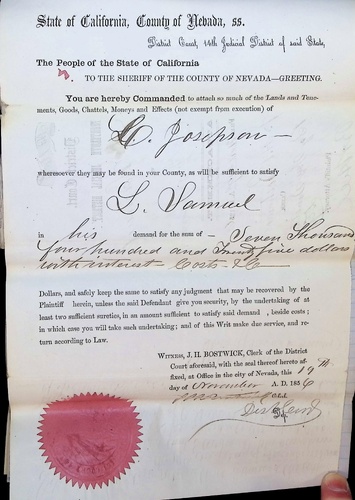 State of California, County of Nevada, ss.
District Court, 14th Judicial District of said State,
The People of the State of California
TO THE SHERIFF OF THE COUNTY OF NEVADA—GREETING.
You are hereby Commanded to attach so much of the Lands and Tene-
ments, Goods, Chattels, Moneys and Effects (not exempt from execution) of
Josephson —
wheresoever they may be found in your County, as will be sufficient to satisfy
L. Samuel
in his demand for the sum of — Seven Thousand
four hundred and Twenty five dollars
with interest Costs &c
Dollars, and safely keep the same to satisfy any judgment that may be recovered by the
Plaintiff herein, unless the said Defendant give you security, by the undertaking of at
least two sufficient sureties, in an amount sufficient to satisfy said demand, besides costs;
in which case you will take such undertaking; and of this Writ make due service, and re-
turn according to Law.
WITNESS, J. H. BOSTWICK, Clerk of the District
Court aforesaid, with the seal thereof hereto af-
fixed, at Office in the city of Nevada, this 19th
day of November A. D. 1856
Clk.
Dist Court